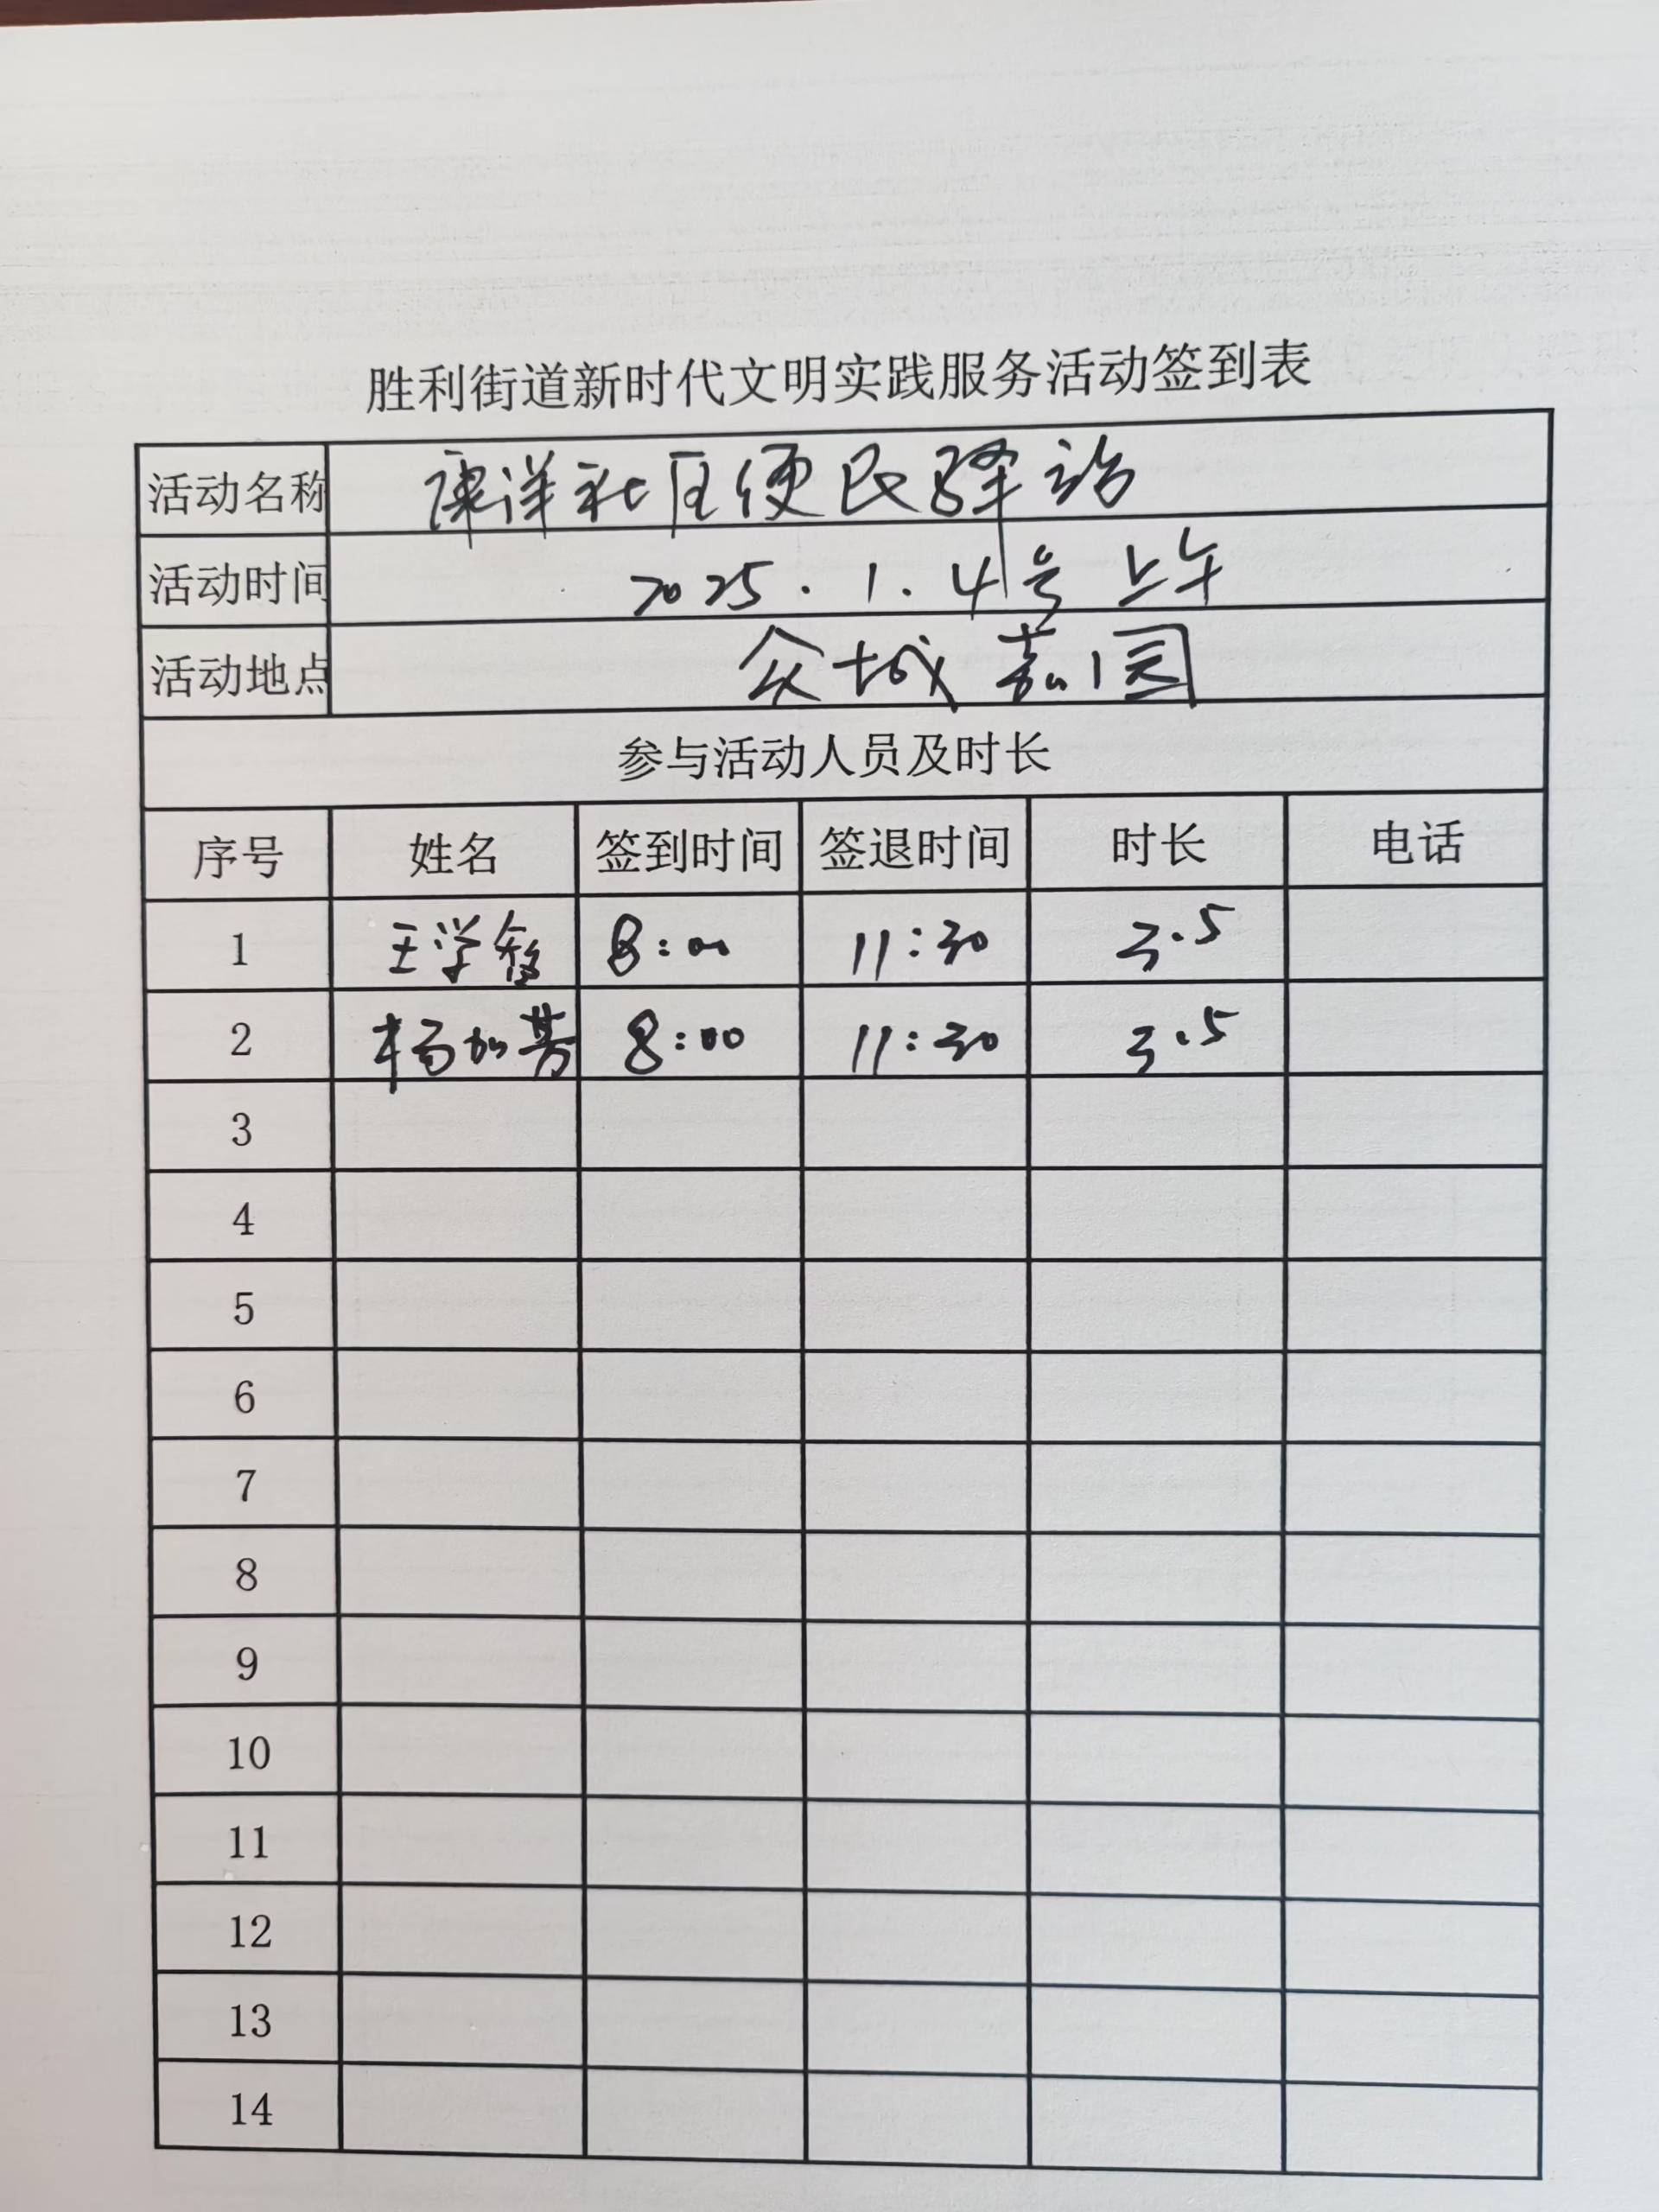 胜利街道新时代文明实践服务活动签到表
活动名称 康洋社区便民驿站
活动时间 2025.1.4号上午
活动地点 众城嘉园
参与活动人员及时长
序号 姓名 签到时间 签退时间 时长 电话
1 王学敏 8:00 11:30 3.5
2 杨加芳 8:00 11:30 3.5
3
4
5
6
7
8
9
10
11
12
13
14